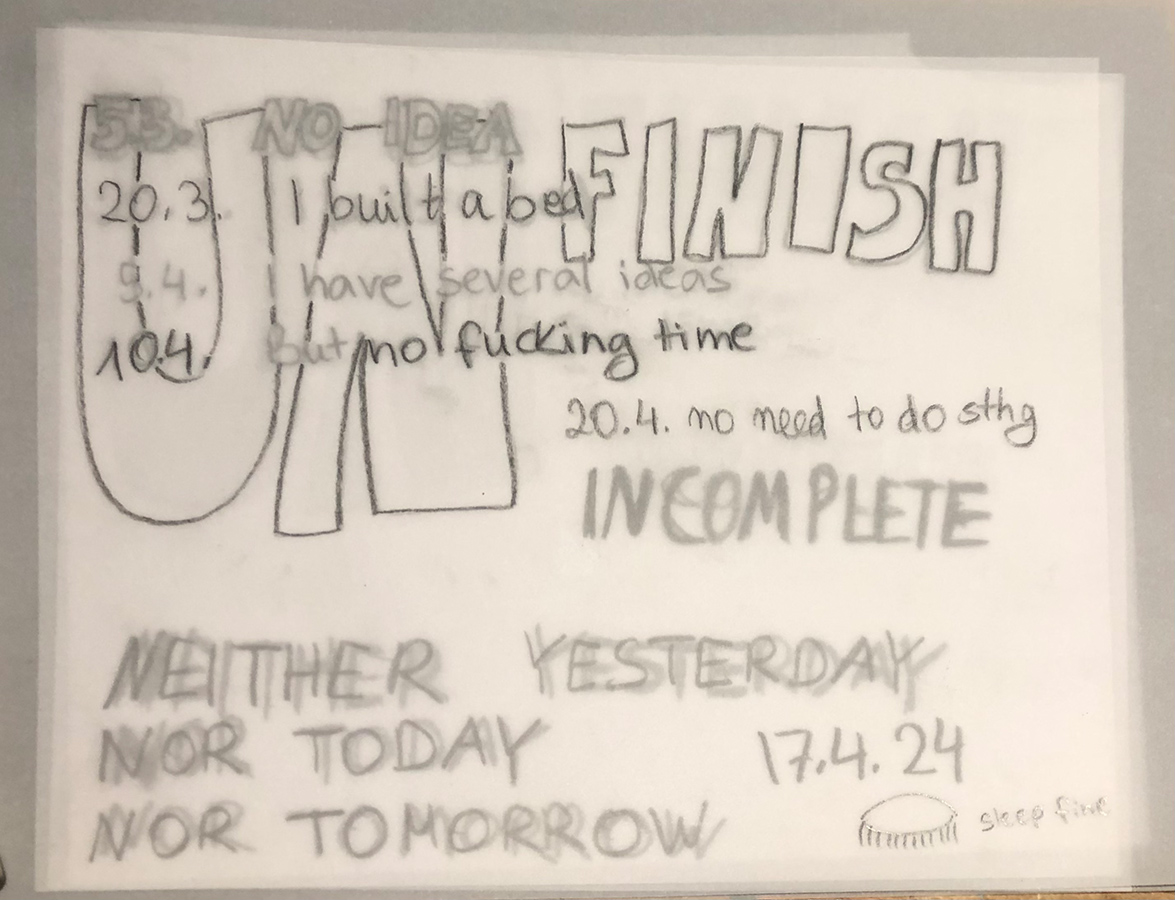 UN FINISH
5.3. NO IDEA
20.3. I built a bed
9.4. I have several ideas
10.4. But no fucking time
20.4. no need to do sthg
INCOMPLETE
NEITHER YESTERDAY
NOR TODAY
17.4.24
NOR TOMORROW
sleep fine